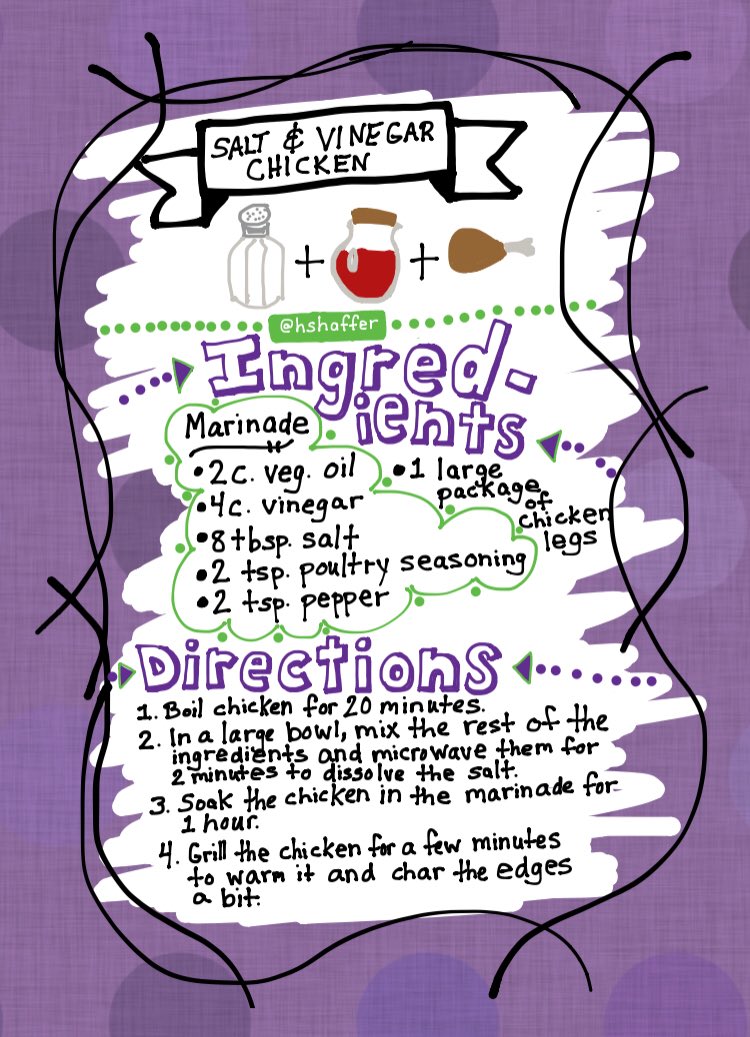 SALT & VINEGAR
CHICKEN
+ +
@hshaffer
Ingred-
ients
Marinade
•2c. veg. oil
•4c. vinegar
•8 tbsp. salt
•2 tsp. poultry seasoning
•2 tsp. pepper
•1 large
package
of
chicken
legs
Directions
1. Boil chicken for 20 minutes.
2. In a large bowl, mix the rest of the
ingredients and microwave them for
2 minutes to dissolve the salt.
3. Soak the chicken in the marinade for
1 hour.
4. Grill the chicken for a few minutes
to warm it and char the edges
a bit.